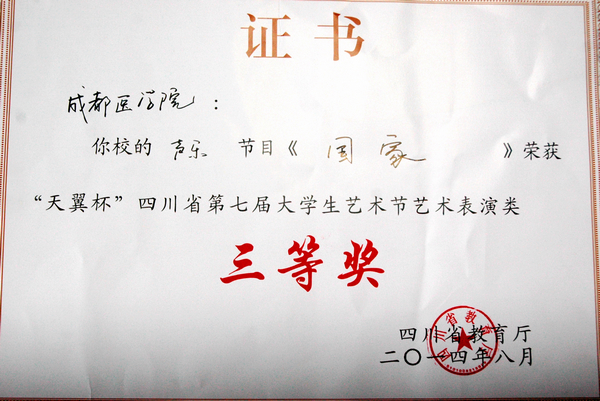 证书
成都医学院：
你校的 声乐 节目《 国家 》荣获
“天翼杯”四川省第七届大学生艺术节艺术表演类
三等奖
四川省教育厅
二〇一四年八月